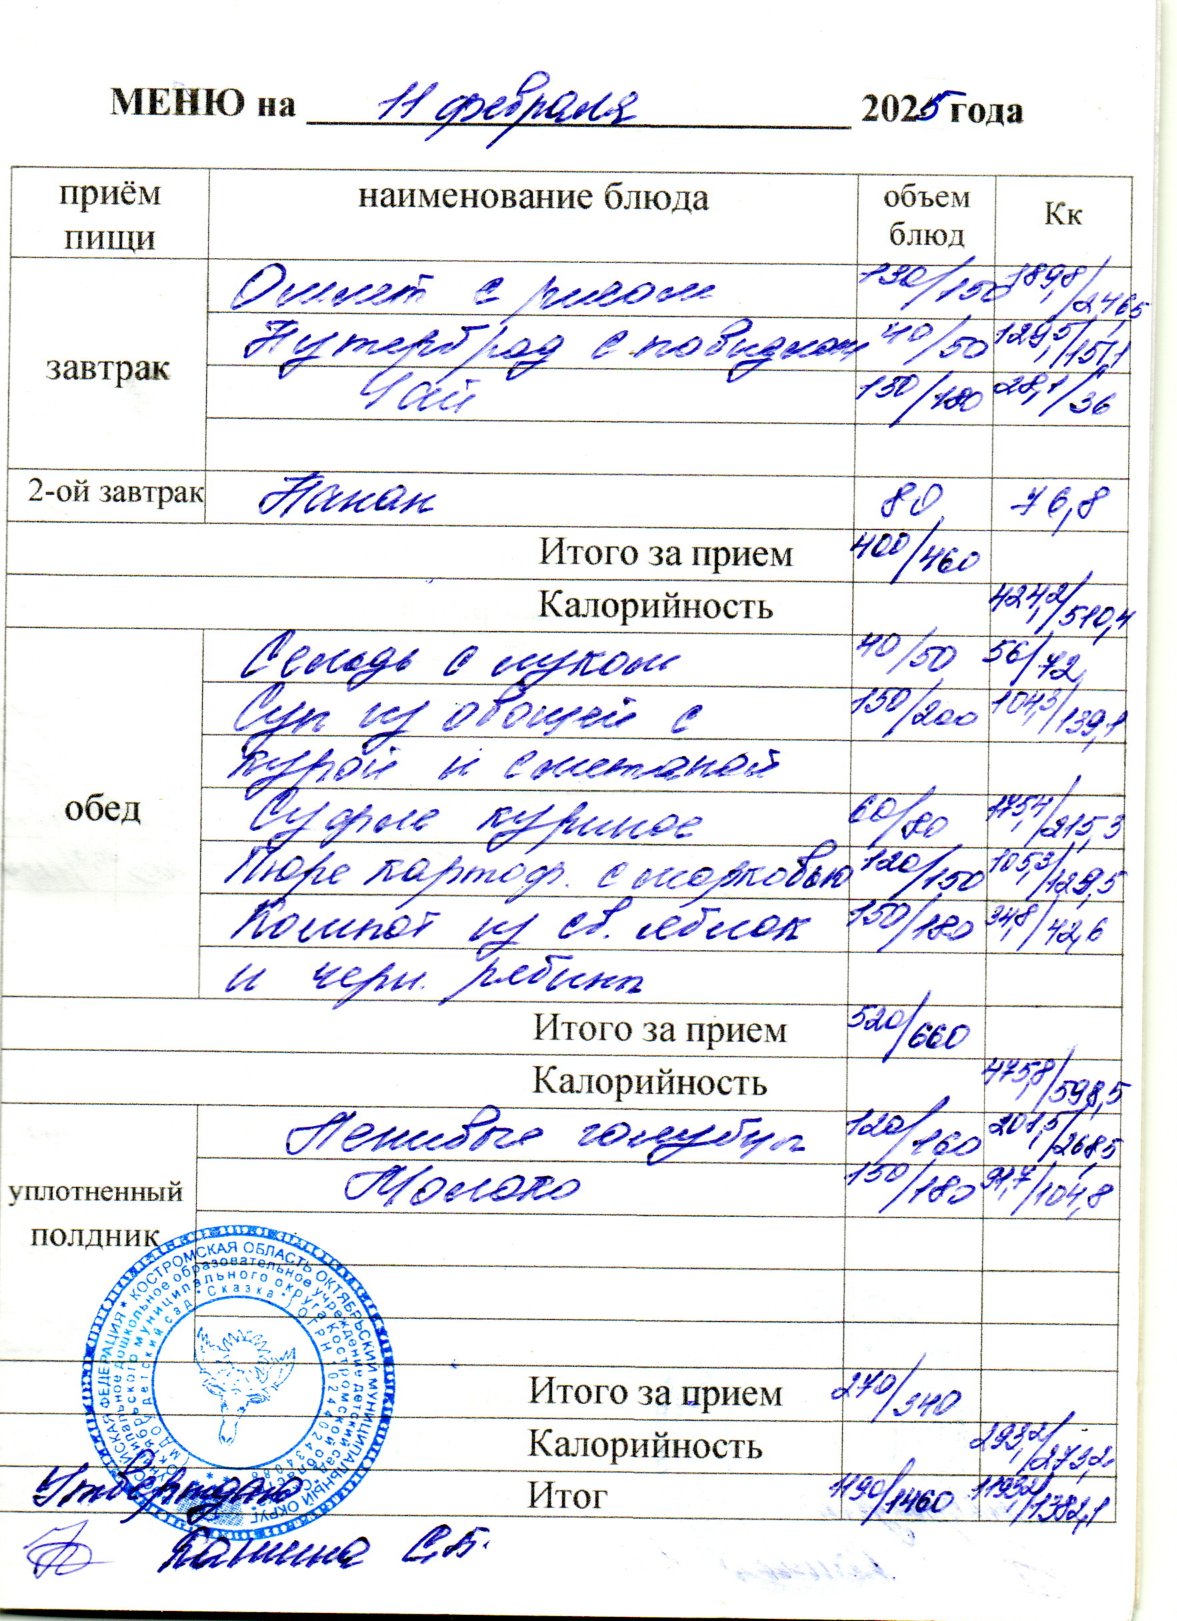 МЕНЮ на 11 февраля 2025 года
приём пищи наименование блюда объем блюд Кк
завтрак
Омлет с рисом 130/150 189,8/246,5
Бутерброд с повидлом 40/50 129,5/151,1
Чай 150/180 28,1/36
2-ой завтрак Банан 80 76,8
Итого за прием 400/460
Калорийность 424,2/510,4
обед
Сельдь с луком 40/50 56/72
Суп из овощей с 150/200 104,3/139,1
курой и сметаной
Суфле куриное 60/80 175,4/215,3
Пюре картоф. с морковью 120/150 105,3/129,5
Компот из св. яблок 150/180 34,8/42,6
и черн. рябины
Итого за прием 520/660
Калорийность 475,8/598,5
уплотненный полдник
Ленивые голубцы 120/160 201,5/268,5
Молоко 150/180 91,7/104,8
Итого за прием 270/340
Калорийность 293,2/273,2
Итог 1190/1460 1193,2/1382,1
РОССИЙСКАЯ ФЕДЕРАЦИЯ * КОСТРОМСКАЯ ОБЛАСТЬ ОКТЯБРЬСКИЙ МУНИЦИПАЛЬНЫЙ ОКРУГ
муниципальное дошкольное образовательное учреждение детский сад "Сказка"
Октябрьского муниципального округа Костромской области
(МДОУ детский сад "Сказка") ОГРН 1024402434088
Утверждаю
С.Б.